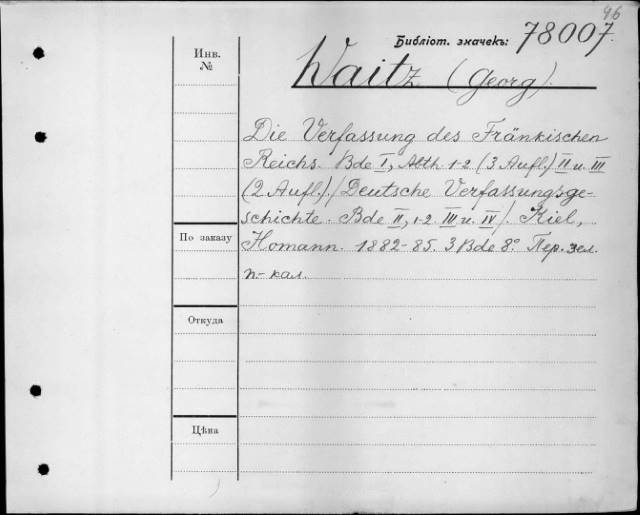 46
Библіот. значекъ: 78007.
Инв.
№
Waitz (Georg).
Die Verfassung des Fränkischen
Reichs. Bde I, Abth. 1-2 (3 Aufl.) II u. III
(2 Aufl.). / Deutsche Verfassungsge-
schichte. Bde II, 1-2. III u. IV /. Kiel,
По заказу
Homann. 1882-85. 3 Bde 8°. Пер. зел.
п-кал.
Откуда
Цѣна